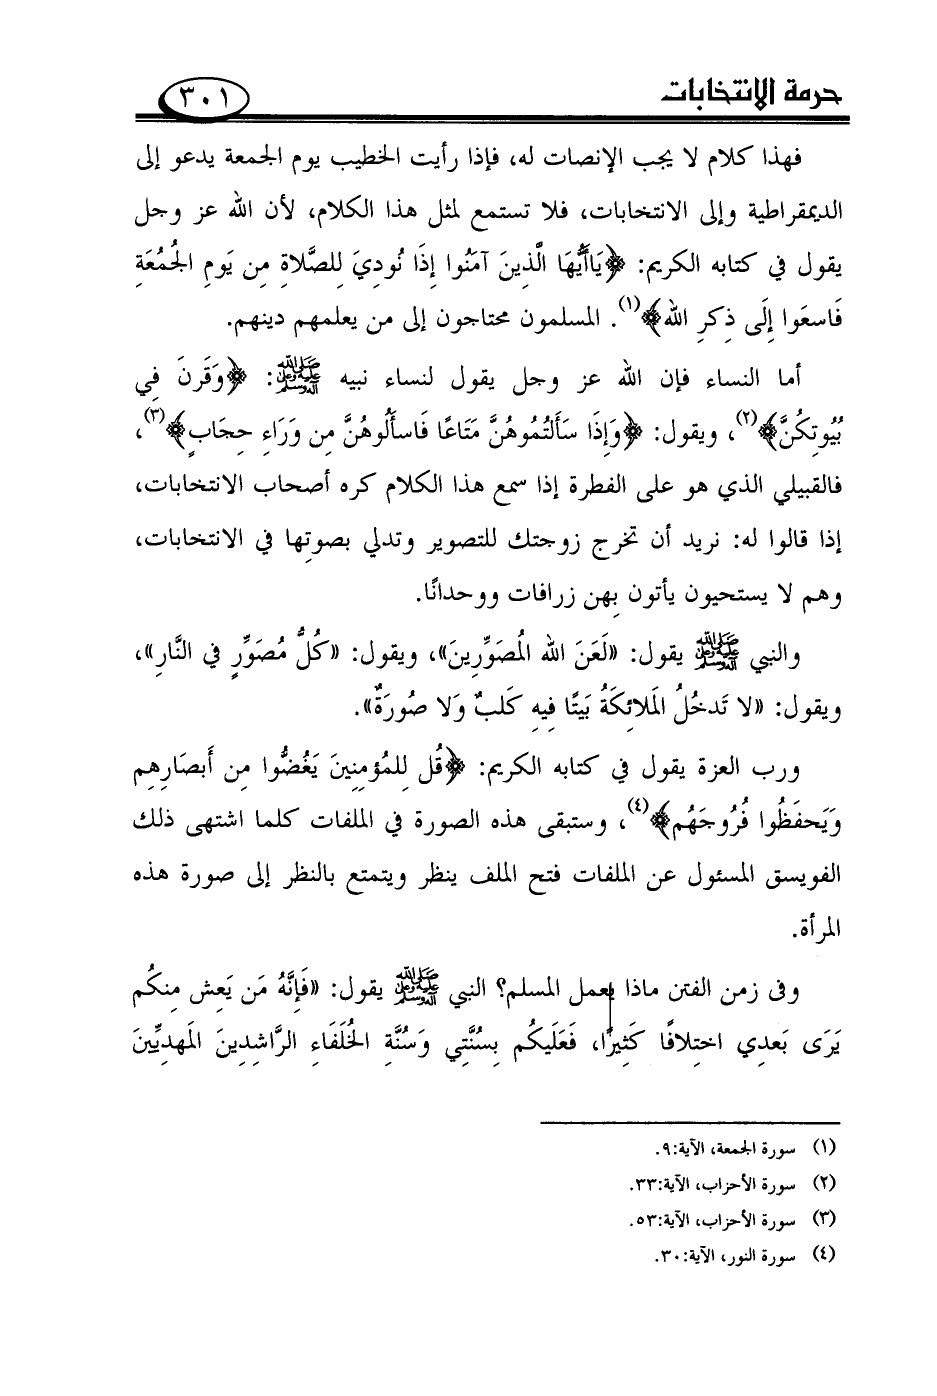 حرمة الانتخابات
٣٠١
فهذا كلام لا يجب الإنصات له، فإذا رأيت الخطيب يوم الجمعة يدعو إلى
الديمقراطية وإلى الانتخابات، فلا تستمع لمثل هذا الكلام، لأن الله عز وجل
يقول في كتابه الكريم: ﴿يَاأَيُّهَا الَّذِينَ آمَنُوا إِذَا نُودِيَ لِلصَّلاةِ مِن يَومِ الجُمُعَةِ
فَاسعَوا إِلَى ذِكرِ الله﴾(١). المسلمون محتاجون إلى من يعلمهم دينهم.
أما النساء فإن الله عز وجل يقول لنساء نبيه ﷺ: ﴿وَقَرنَ فِي
بُيُوتِكُنَّ﴾(٢)، ويقول: ﴿وَإِذَا سَأَلتُمُوهُنَّ مَتَاعًا فَاسأَلُوهُنَّ مِن وَرَاءِ حِجَابٍ﴾(٣)،
فالقبيلي الذي هو على الفطرة إذا سمع هذا الكلام كره أصحاب الانتخابات،
إذا قالوا له: نريد أن تخرج زوجتك للتصوير وتدلي بصوتها في الانتخابات،
وهم لا يستحيون يأتون بهن زرافات ووحدانًا.
والنبي ﷺ يقول: «لَعَنَ الله المُصَوِّرِينَ»، ويقول: «كُلُّ مُصَوِّرٍ فِي النَّارِ»،
ويقول: «لا تَدخُلُ المَلائِكَةُ بَيتًا فِيهِ كَلبٌ وَلا صُورَةٌ».
ورب العزة يقول في كتابه الكريم: ﴿قُل لِلمُؤمِنِينَ يَغُضُّوا مِن أَبصَارِهِم
وَيَحفَظُوا فُرُوجَهُم﴾(٤)، وستبقى هذه الصورة في الملفات كلما اشتهى ذلك
الفويسق المسئول عن الملفات فتح الملف ينظر ويتمتع بالنظر إلى صورة هذه
المرأة.
وفى زمن الفتن ماذا يعمل المسلم؟ النبي ﷺ يقول: «فَإِنَّهُ مَن يَعِش مِنكُم
يَرَى بَعدِي اختِلافًا كَثِيرًا، فَعَلَيكُم بِسُنَّتِي وَسُنَّةِ الخُلَفَاءِ الرَّاشِدِينَ المَهدِيِّينَ
(١) سورة الجمعة، الآية:٩.
(٢) سورة الأحزاب، الآية:٣٣.
(٣) سورة الأحزاب، الآية:٥٣.
(٤) سورة النور، الآية:٣٠.